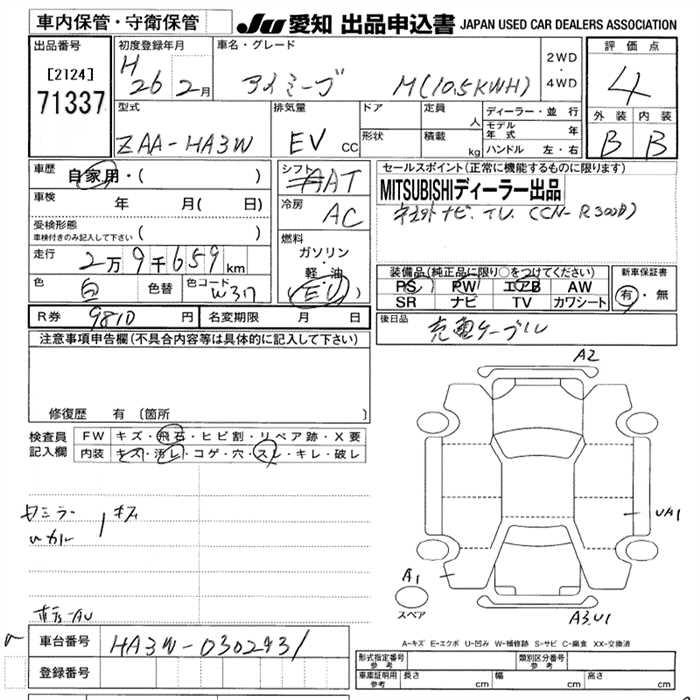 車内保管・守衛保管
JU 愛知 出品申込書 JAPAN USED CAR DEALERS ASSOCIATION
出品番号
[2124]
71337
初度登録年月
H
26 2月
車名・グレード
アイミーブ M(10.5KWH)
2WD
・
4WD
評価点
4
外装 内装
B B
型式
ZAA-HA3W
排気量
EV CC
ドア
形状
定員 人
積載 kg
ディーラー・並行
モデル年式 年
ハンドル 左・右
車歴
自家用・( )
車検 年 月( 日)
受検形態
車検付きのみ記入して下さい ( )
走行 2万9千659km
色 白 色替 色コード W37
シフト AAT
冷房 AC
燃料
ガソリン
・
軽・油
(EV)
セールスポイント(正常に機能するものに限ります)
MITSUBISHIディーラー出品
ナビ、TV (CN-R300D)
装備品(純正品に限り○をつけてください)
PS PW エアB AW
SR ナビ TV カワシート
新車保証書
有・無
後日品
充電ケーブル
R券 9810 円 名変期限 月 日
注意事項申告欄(不具合内容等は具体的に記入して下さい)
修復歴 有 〔箇所 〕
検査員
記入欄
FW キズ・飛石・ヒビ割・リペア跡・X要
内装 キズ・汚レ・コゲ・穴・スレ・キレ・破レ
ミラー キズ
A2
UA1
A1
スペア
A3,U1
A-キズ E-エクボ U-凹み W-補修跡 S-サビ C-腐食 XX-交換済
車台番号 HA3W-0302931
登録番号
形式指定番号
参考
類別区分番号
参考
車庫証明用
参考
長さ cm 幅 cm 高さ cm